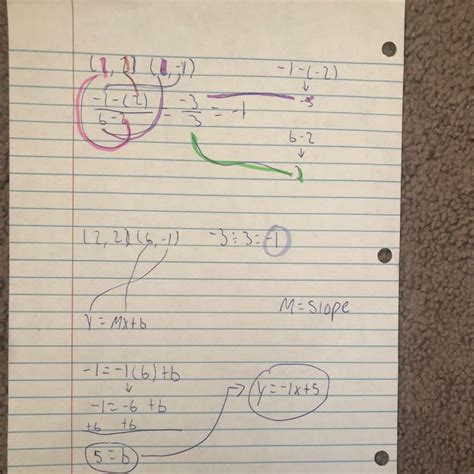 (2, 2) (6, -1)   -1-(-2)
-1-(2) / 6-2 = -3/3 = -1   -3
6-2
(2, 2) (6, -1)   -3÷3=-1
M=Slope
y=Mx+b
-1=-1(6)+b
-1=-6+b   y=-1x+5
+6 +6
5=b